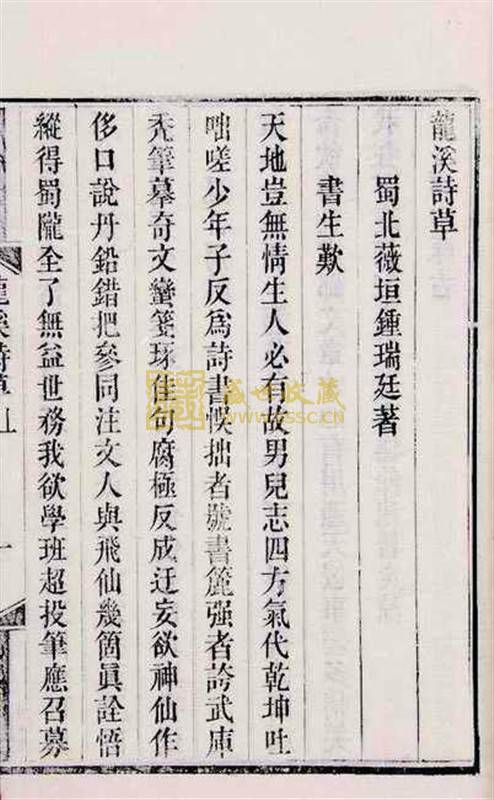 龍溪詩草
蜀北薇垣鍾瑞廷著
書生歎
天地豈無情生人必有故男兒志四方氣代乾坤吐
咄嗟少年子反爲詩書悞拙者號書簏强者誇武庫
禿筆摹奇文蠻箋琢佳句腐極反成迂妄欲神仙作
侈口說丹鉛錯把參同注文人與飛仙幾箇眞詮悟
縱得蜀隴全了無益世務我欲學班超投筆應召募
龍溪詩草 上
一
盛世收藏
www.sssc.cn